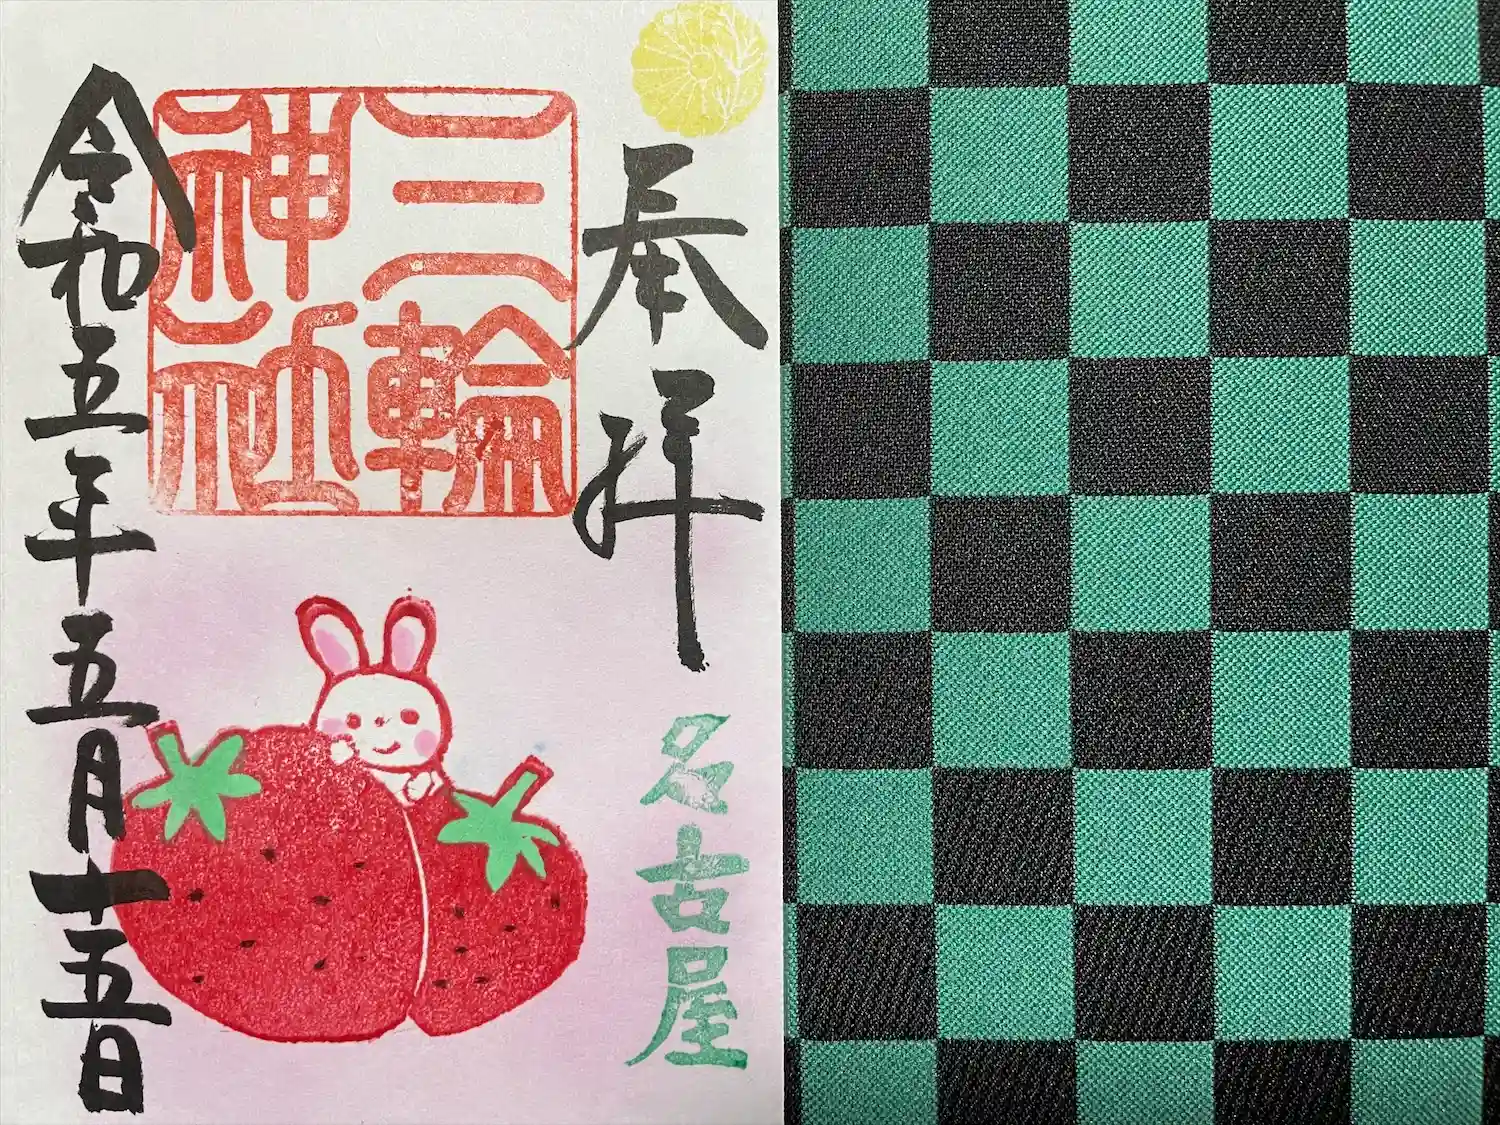 奉拝
名古屋
三輪
神社
令和五年五月十五日